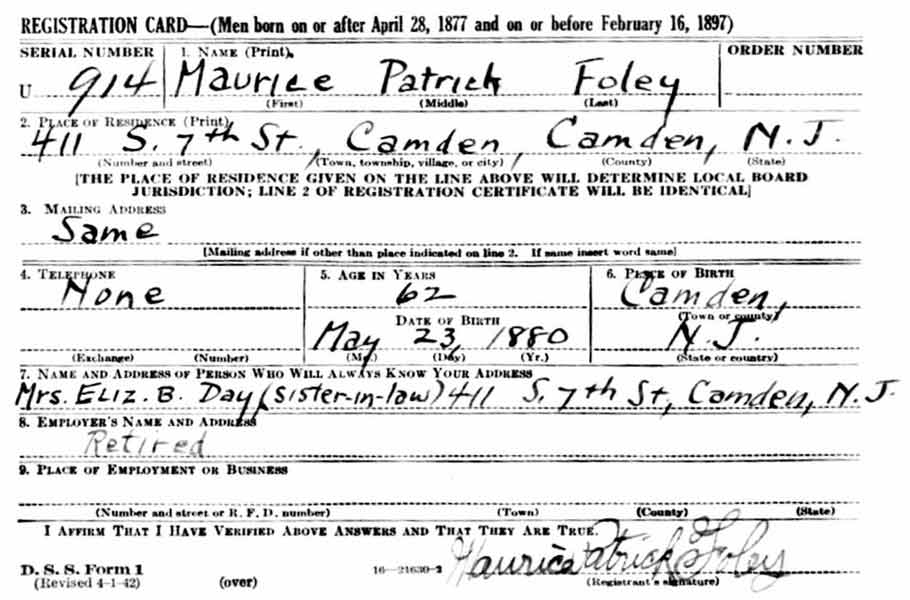 REGISTRATION CARD—(Men born on or after April 28, 1877 and on or before February 16, 1897)
SERIAL NUMBER 1. NAME (Print) ORDER NUMBER
U 914 Maurice Patrick Foley
(First) (Middle) (Last)
2. PLACE OF RESIDENCE (Print)
411 S. 7th St., Camden, Camden, N.J.
(Number and street) (Town, township, village, or city) (County) (State)
[THE PLACE OF RESIDENCE GIVEN ON THE LINE ABOVE WILL DETERMINE LOCAL BOARD
JURISDICTION; LINE 2 OF REGISTRATION CERTIFICATE WILL BE IDENTICAL]
3. MAILING ADDRESS
Same
[Mailing address if other than place indicated on line 2. If same insert word same]
4. TELEPHONE 5. AGE IN YEARS 6. PLACE OF BIRTH
None 62 Camden,
DATE OF BIRTH (Town or county)
May 23, 1880 N.J.
(Exchange) (Number) (Mo.) (Day) (Yr.) (State or country)
7. NAME AND ADDRESS OF PERSON WHO WILL ALWAYS KNOW YOUR ADDRESS
Mrs. ELIZ. B. Day (sister-in-law) 411 S. 7th St, Camden, N.J.
8. EMPLOYER'S NAME AND ADDRESS
Retired
9. PLACE OF EMPLOYMENT OR BUSINESS
(Number and street or R. F. D. number) (Town) (County) (State)
I AFFIRM THAT I HAVE VERIFIED ABOVE ANSWERS AND THAT THEY ARE TRUE.
Maurice Patrick Foley
D. S. S. Form 1
(Revised 4-1-42) (over) 16—21630-2 (Registrant's signature)